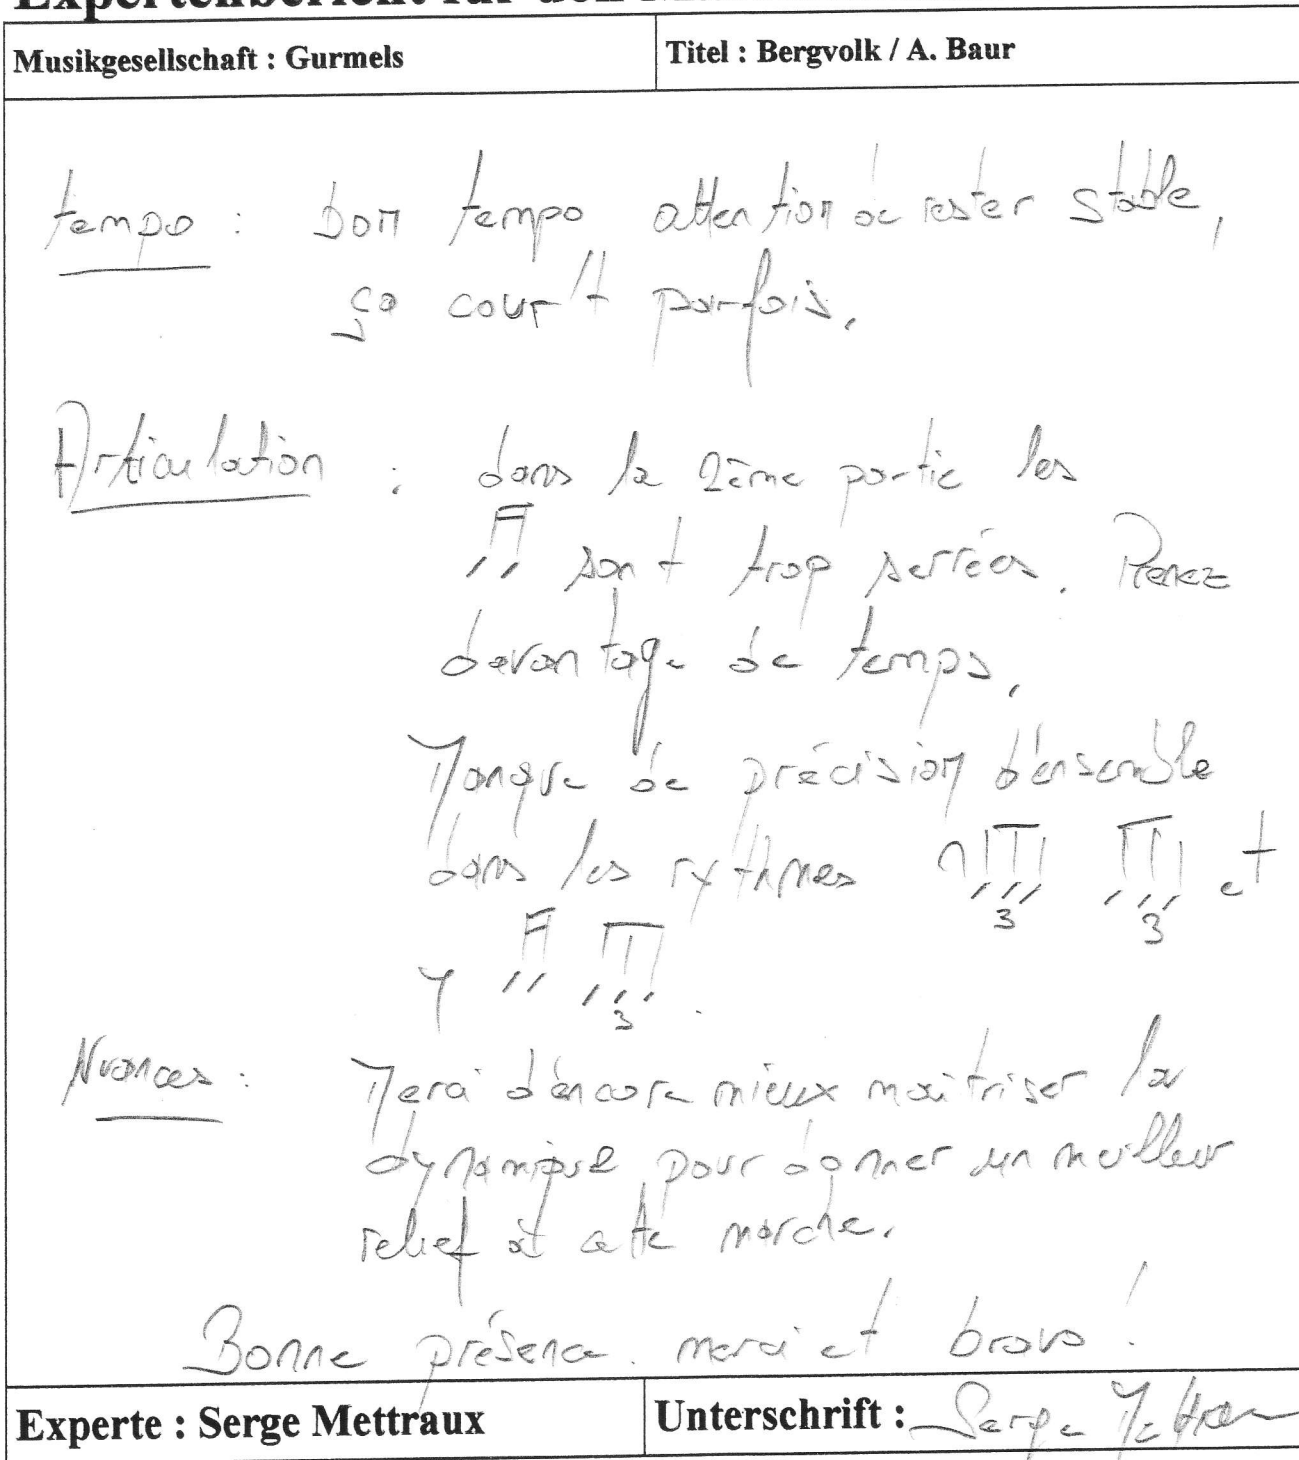 Expertenbericht für den Ma
Musikgesellschaft : Gurmels
Titel : Bergvolk / A. Baur
tempo : bon tempo attention de rester stable,
ça cour't parfois.
Articulation : dans la 2ème partie les
sont trop serrées. Prenez
davantage de temps.
Manque de précision d'ensemble
dans les rythmes 3 3 et
3
Nuances : Merci d'encore mieux maîtriser la
dynamique pour donner un meilleur
relief à cette marche.
Bonne présence. merci et bravo !
Experte : Serge Mettraux
Unterschrift : Serge Mettraux